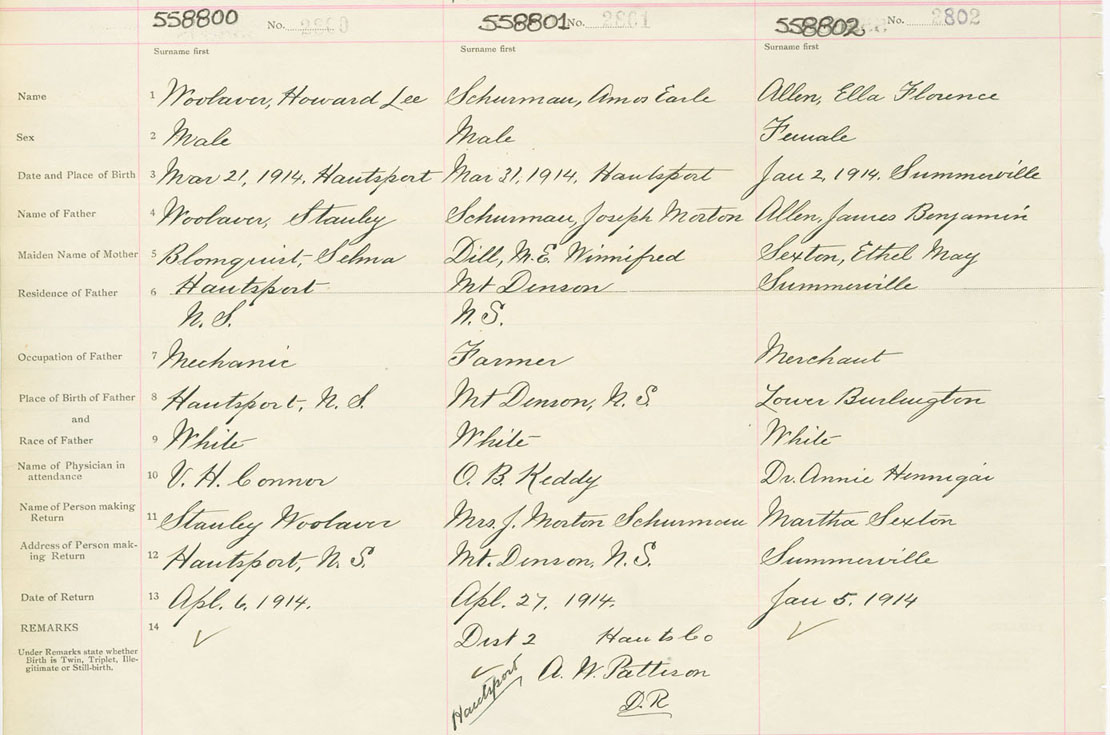 558800 No. 2800 558801 No. 2801 558802 No. 2802
Surname first Surname first Surname first
Name 1 Woolaver, Howard Lee Schurman, Amos Earle Allen, Ella Florence
Sex 2 Male Male Female
Date and Place of Birth 3 Mar 21, 1914, Hantsport Mar 31, 1914, Hantsport Jan 2, 1914, Summerville
Name of Father 4 Woolaver, Stanley Schurman, Joseph Morton Allen, James Benjamin
Maiden Name of Mother 5 Blomquist, Selma Dill, M.E. Winnifred Sexton, Ethel May
Residence of Father 6 Hantsport Mt Denson Summerville
N.S. N.S.
Occupation of Father 7 Mechanic Farmer Merchant
Place of Birth of Father 8 Hantsport, N.S. Mt Denson, N.S. Lower Burlington
and
Race of Father 9 White White White
Name of Physician in
attendance 10 V. H. Connor O. B. Keddy Dr. Annie Hennigar
Name of Person making
Return 11 Stanley Woolaver Mrs. J. Morton Schurman Martha Sexton
Address of Person mak-
ing Return 12 Hantsport, N.S. Mt. Denson, N.S. Summerville
Date of Return 13 Apl. 6, 1914. Apl. 27, 1914. Jan 5, 1914
REMARKS 14 Dist 2 Hants Co
Under Remarks state whether
Birth is Twin, Triplet, Ille-
gitimate or Still-birth.
Hantsport A. W. Pattison
D.R